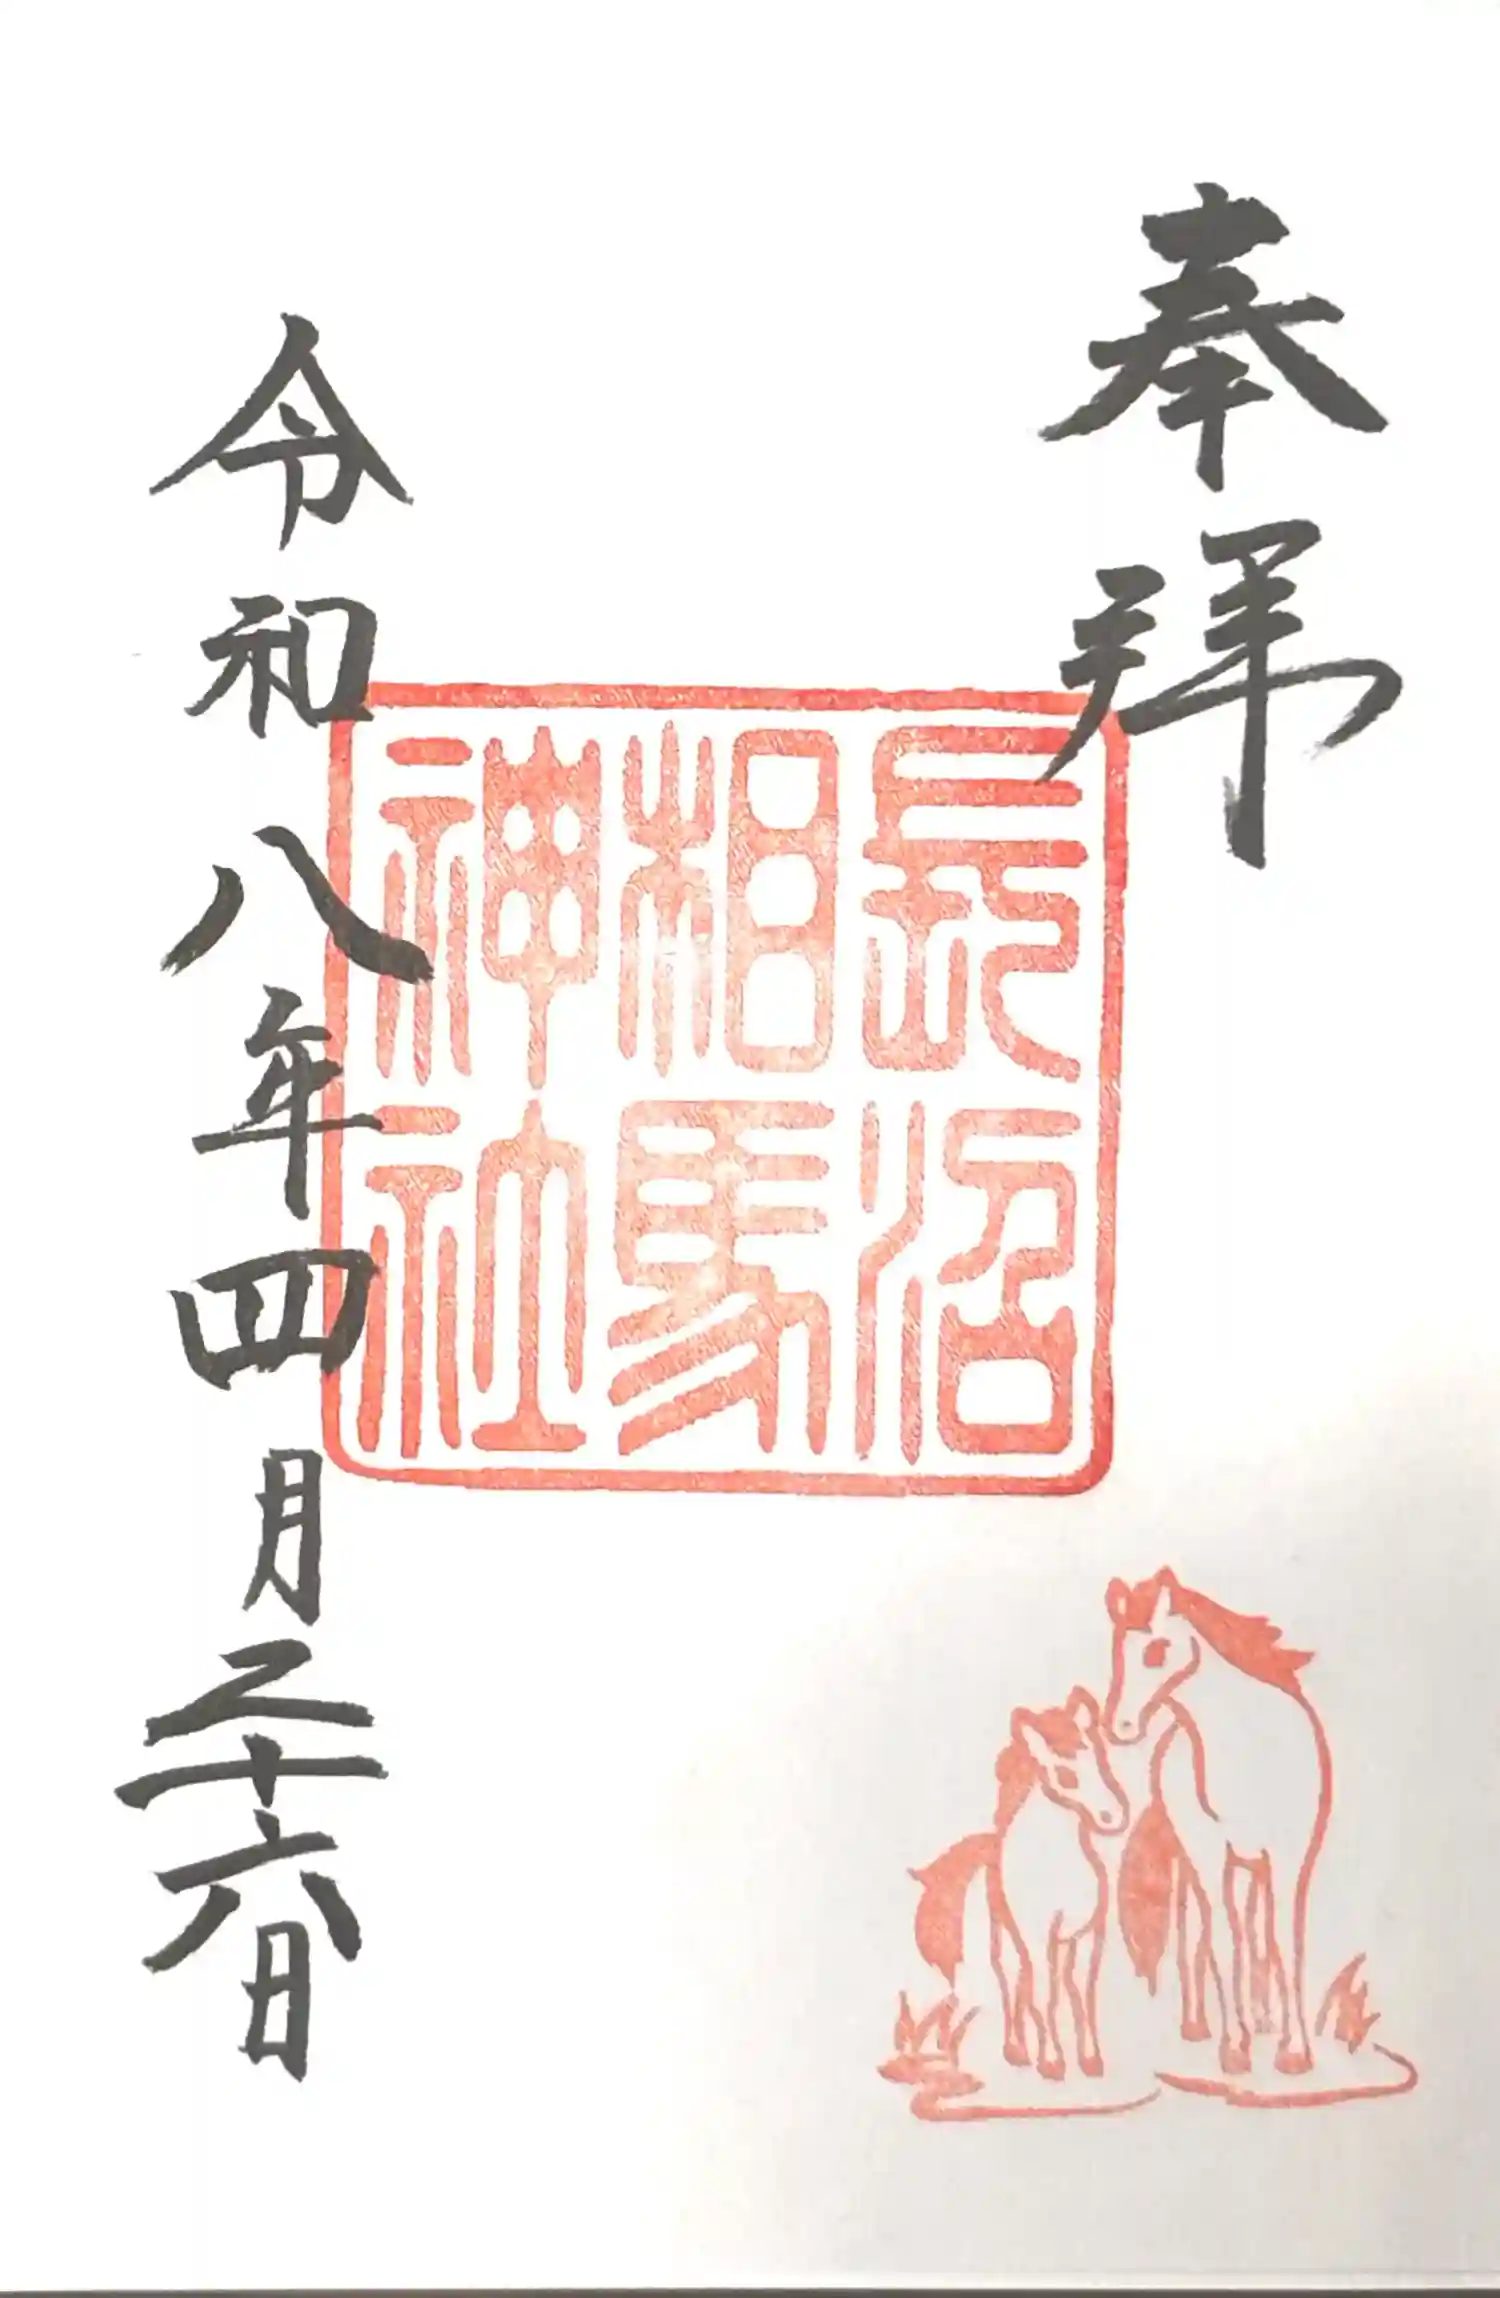 奉拝
長沼
相馬
神社
令和八年四月二十六日